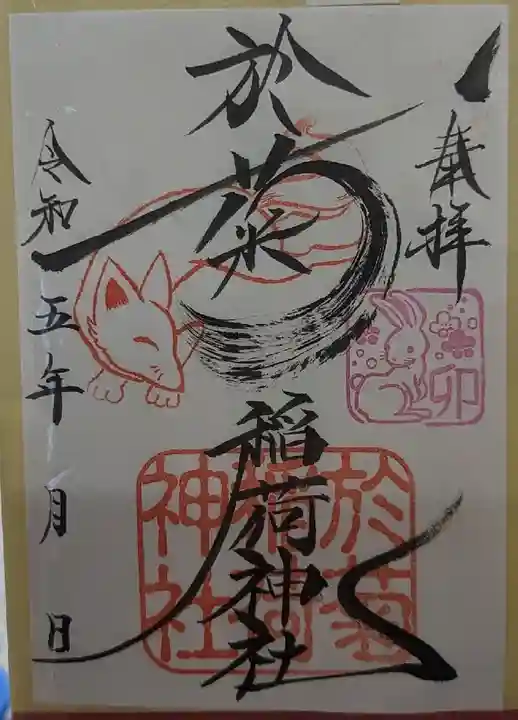 奉拝
卯
於菊
稲荷神社
於菊
稲荷
神社
令和五年 月 日